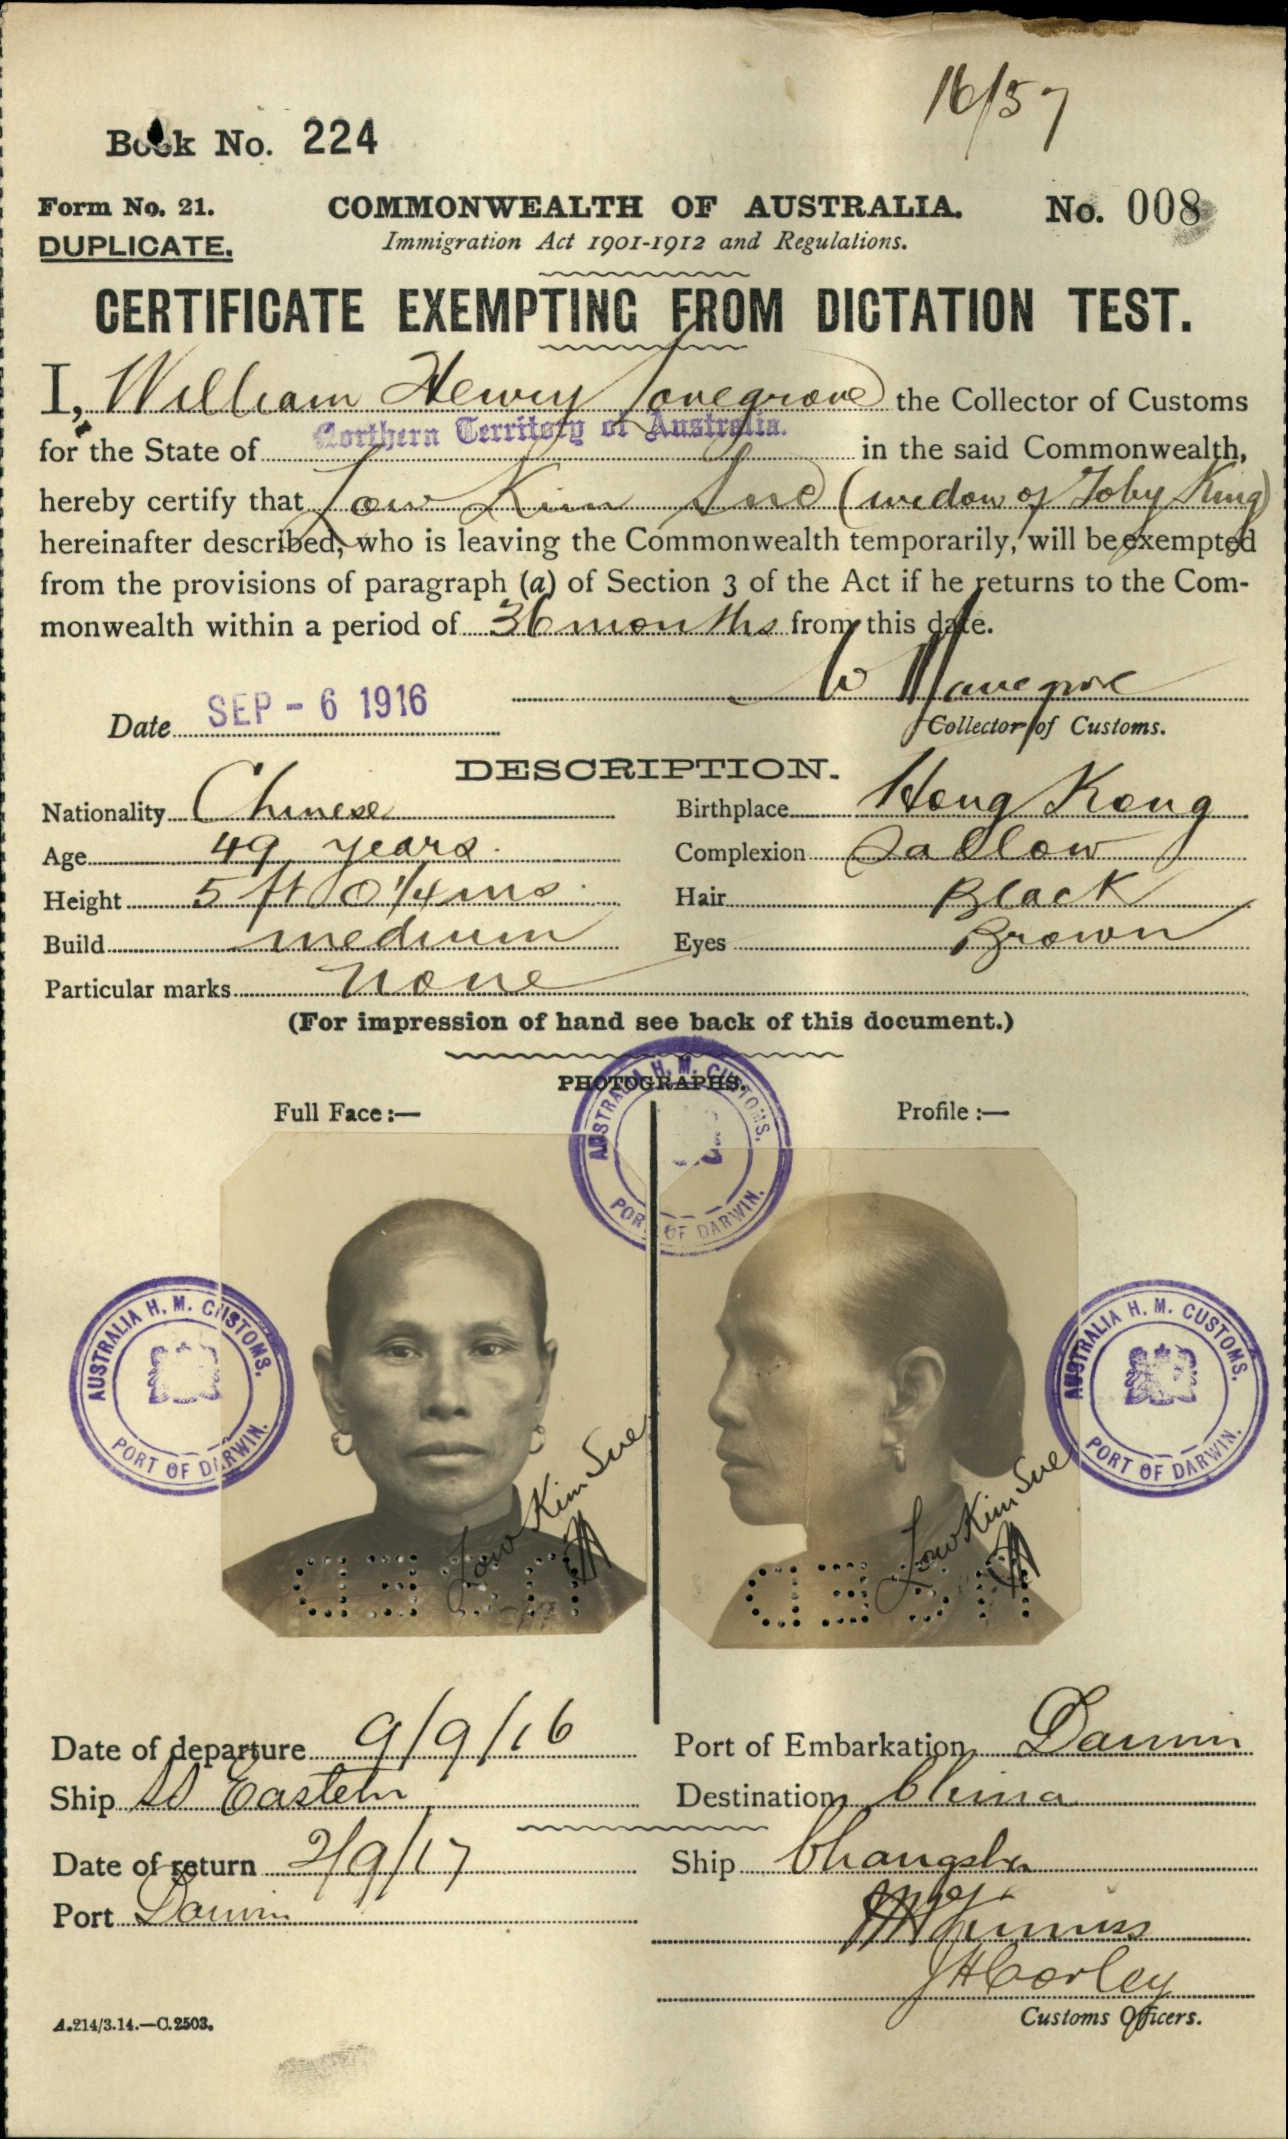 16/57
Book No. 224
Form No. 21. COMMONWEALTH OF AUSTRALIA. No. 008
DUPLICATE. Immigration Act 1901-1912 and Regulations.
CERTIFICATE EXEMPTING FROM DICTATION TEST.
I, William Henry Lovegrove the Collector of Customs
for the State of Northern Territory of Australia. in the said Commonwealth,
hereby certify that Low Kim Sue (widow of Toby King)
hereinafter described, who is leaving the Commonwealth temporarily, will be exempted
from the provisions of paragraph (a) of Section 3 of the Act if he returns to the Com-
monwealth within a period of 36 months from this date.
W H Lovegrove
Date SEP - 6 1916 Collector of Customs.
DESCRIPTION.
Nationality Chinese Birthplace Hong Kong
Age 49 years. Complexion Sallow
Height 5 ft 0 1/4 ins. Hair Black
Build medium Eyes Brown
Particular marks None
(For impression of hand see back of this document.)
PHOTOGRAPHS.
Full Face:— Profile:—
AUSTRALIA H. M. CUSTOMS. PORT OF DARWIN.
AUSTRALIA H. M. CUSTOMS. PORT OF DARWIN.
AUSTRALIA H. M. CUSTOMS. PORT OF DARWIN.
Low Kim Sue Low Kim Sue
Date of departure 9/9/16 Port of Embarkation Darwin
Ship SS Eastern Destination China
Date of return 2/9/17 Ship Changsha
Port Darwin
JHCorley
A.214/3.14.—C.2503. Customs Officers.